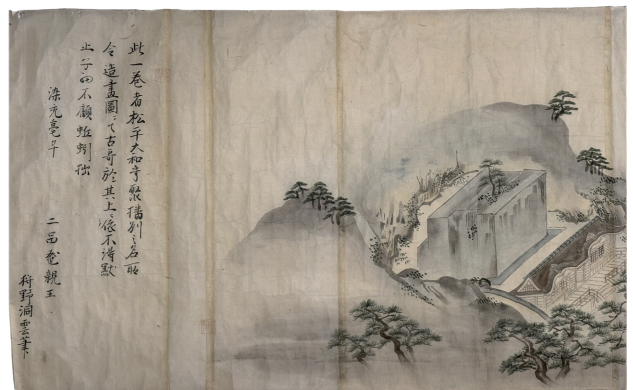 此一巻者松平大和守聚播州之名所
令造畫圖古哥於其上依不得黙
止予而不顧蚯蚓拙
染禿毫
二品親王
狩野洞雲筆